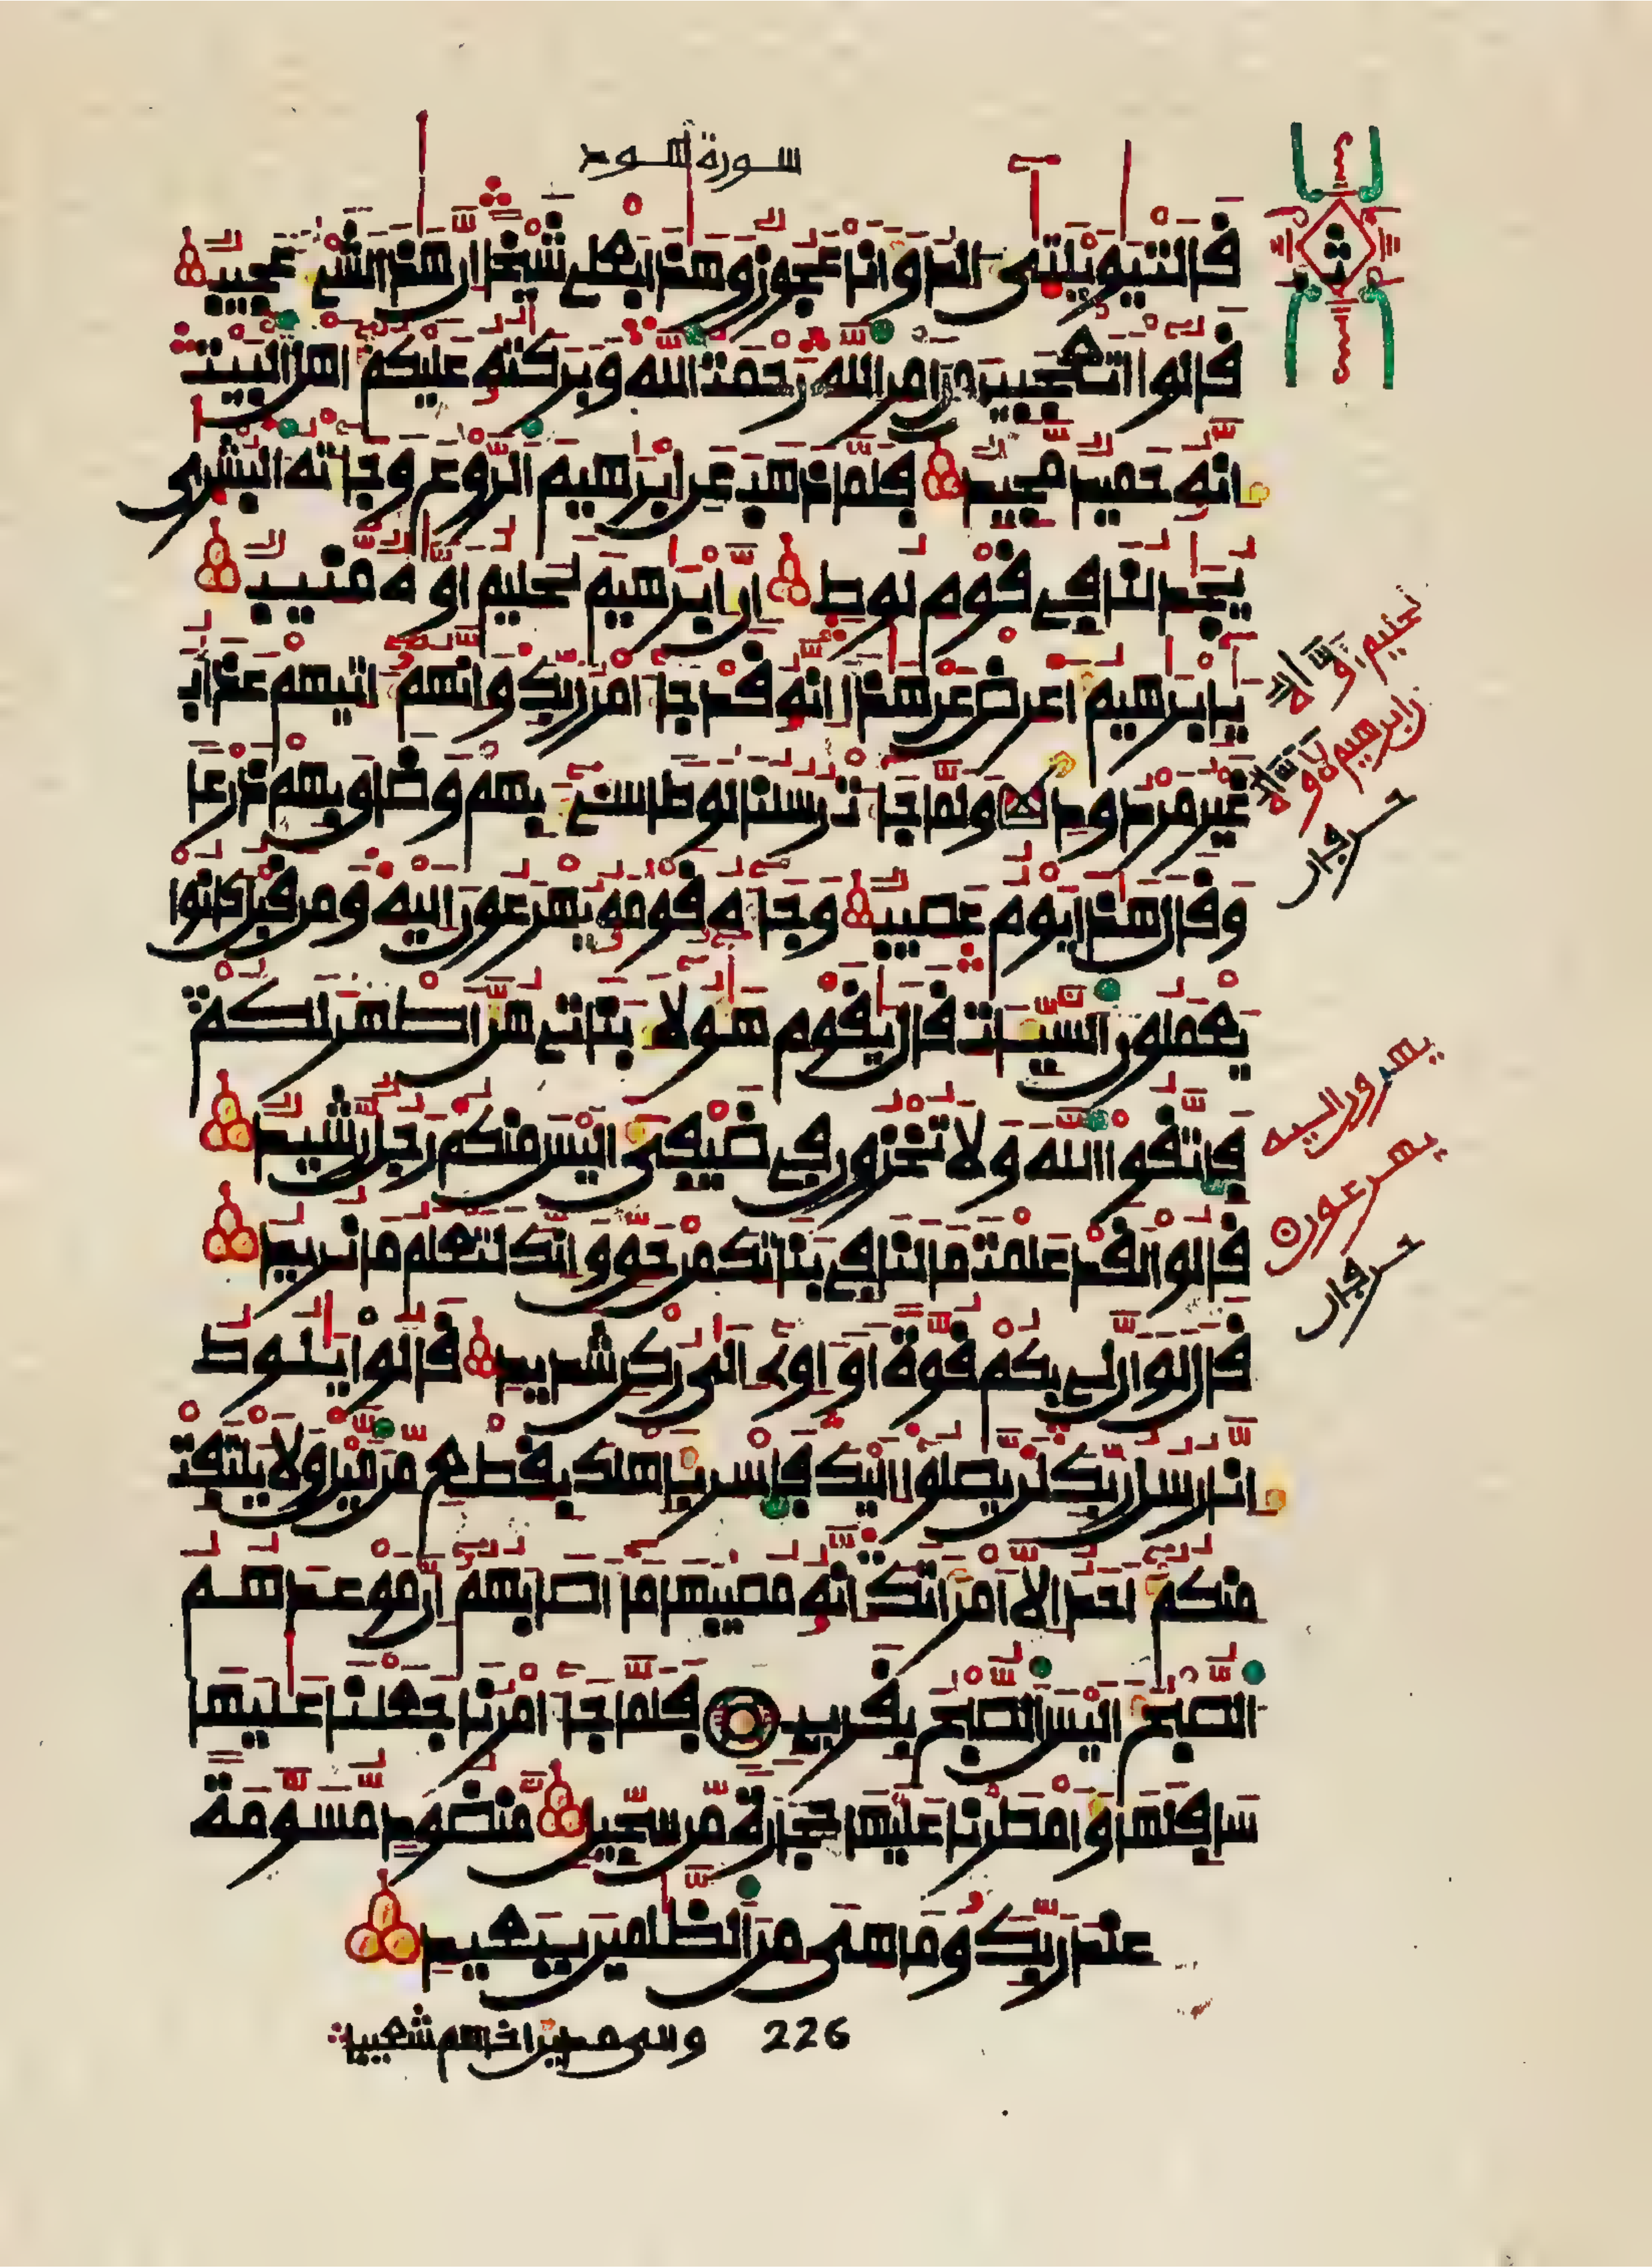 سورة هود
قالت يويلتى الد وانا عجوز وهذا بعلي شيخا ان هذا لشيء عجيب
قالوا اتعجبين من امر الله رحمت الله وبركته عليكم اهل البيت
انه حميد مجيد فلما ذهب عن ابرهيم الروع وجاءته البشرى
يجدلنا في قوم لوط ان ابرهيم لحليم اوه منيب
يابرهيم اعرض عن هذا انه قد جاء امر ربك وانهم اتيهم عذاب
غير مردود ولما جاءت رسلنا لوطا سيء بهم وضاق بهم ذرعا
وقال هذا يوم عصيب وجاءه قومه يهرعون اليه ومن قبل كانوا
يعملون السيات قال يقوم هولاء بناتي هن اطهر لكم
فاتقوا الله ولا تخزون في ضيفي اليس منكم رجل رشيد
قالوا لقد علمت ما لنا في بناتك من حق وانك لتعلم ما نريد
قال لو ان لي بكم قوة او اوي الى ركن شديد قالوا يلوط
انا رسل ربك لن يصلوا اليك فاسر باهلك بقطع من اليل ولا يلتفت
منكم احد الا امراتك انه مصيبها ما اصابهم ان موعدهم
الصبح اليس الصبح بقريب فلما جاء امرنا جعلنا عليها
سافلها وامطرنا عليها حجارة من سجيل منضود مسومة
عند ربك وما هي من الظلمين ببعيد
226
والى مدين اخاهم شعيبا
ثمن
لحليم اوه
ابرهيم لاوه
حرفان
يهرعون اليه
يهرعون
حرفان